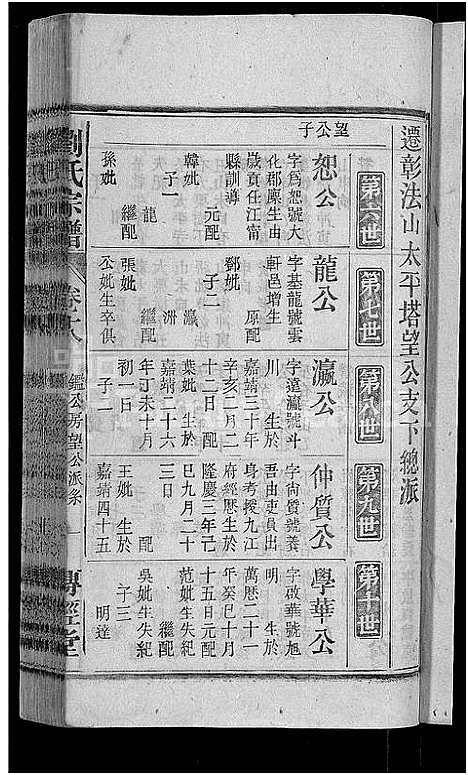 遷彰法山太平塔望公支下總派
第六世
第七世
第八世
第九世
第十世
望公子
恕公
字爲恕號大
化郡廪生由
歲貢任江甯
縣訓導
元配
韓妣
子一
龍
繼配
孫妣
龍公
字基龍號雲
軒邑增生
原配
鄧妣
子二
瀛
洲
繼配
張妣
公妣生卒俱
瀛公
字達瀛號斗
川 生於
嘉靖三十年
辛亥二月二
十二日 配
葉妣 生於
嘉靖二十六
年丁未十月
初一日
子二
仲質公
字尚質號養
吾由吏員出
身考授九江
府經歷生於
隆慶三年己
巳九月二十
三日
配
王妣 生於
嘉靖四十五
學華公
字啟華號旭
明 生於
萬歷二十一
年癸巳十月
十五日元配
范妣生失紀
繼配
吳妣生失紀
子三
明達
劉氏宗譜
鑑公房望公派系
一
傳經堂